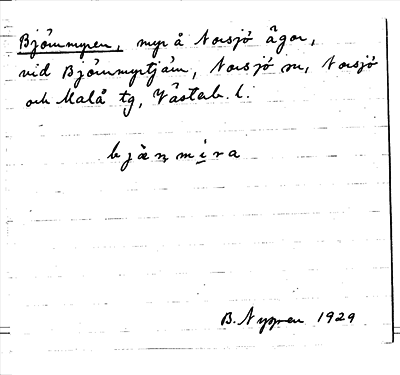 Björnmyren, myr å Norsjö ägor,
vid Björnmyrtjärn, Norsjö sn, Norsjö
och Malå tg, Västerb. l.
bjän mira
B. Nygren 1929